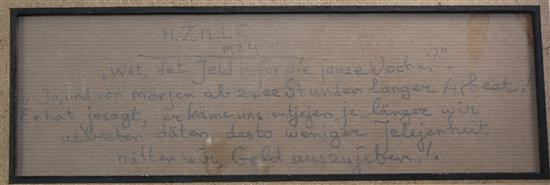 H. ZILLE
1924
"Wat, det Jeld is for die janze Woche?"
"Ja, und von morjen ab zwee Stunden länger Arbeet!
Er hat jesagt, er käme uns entjejen, je länger wir
arbeeten däten, desto weniger Jelejenheit
hätten wir, Geld auszujeben!"